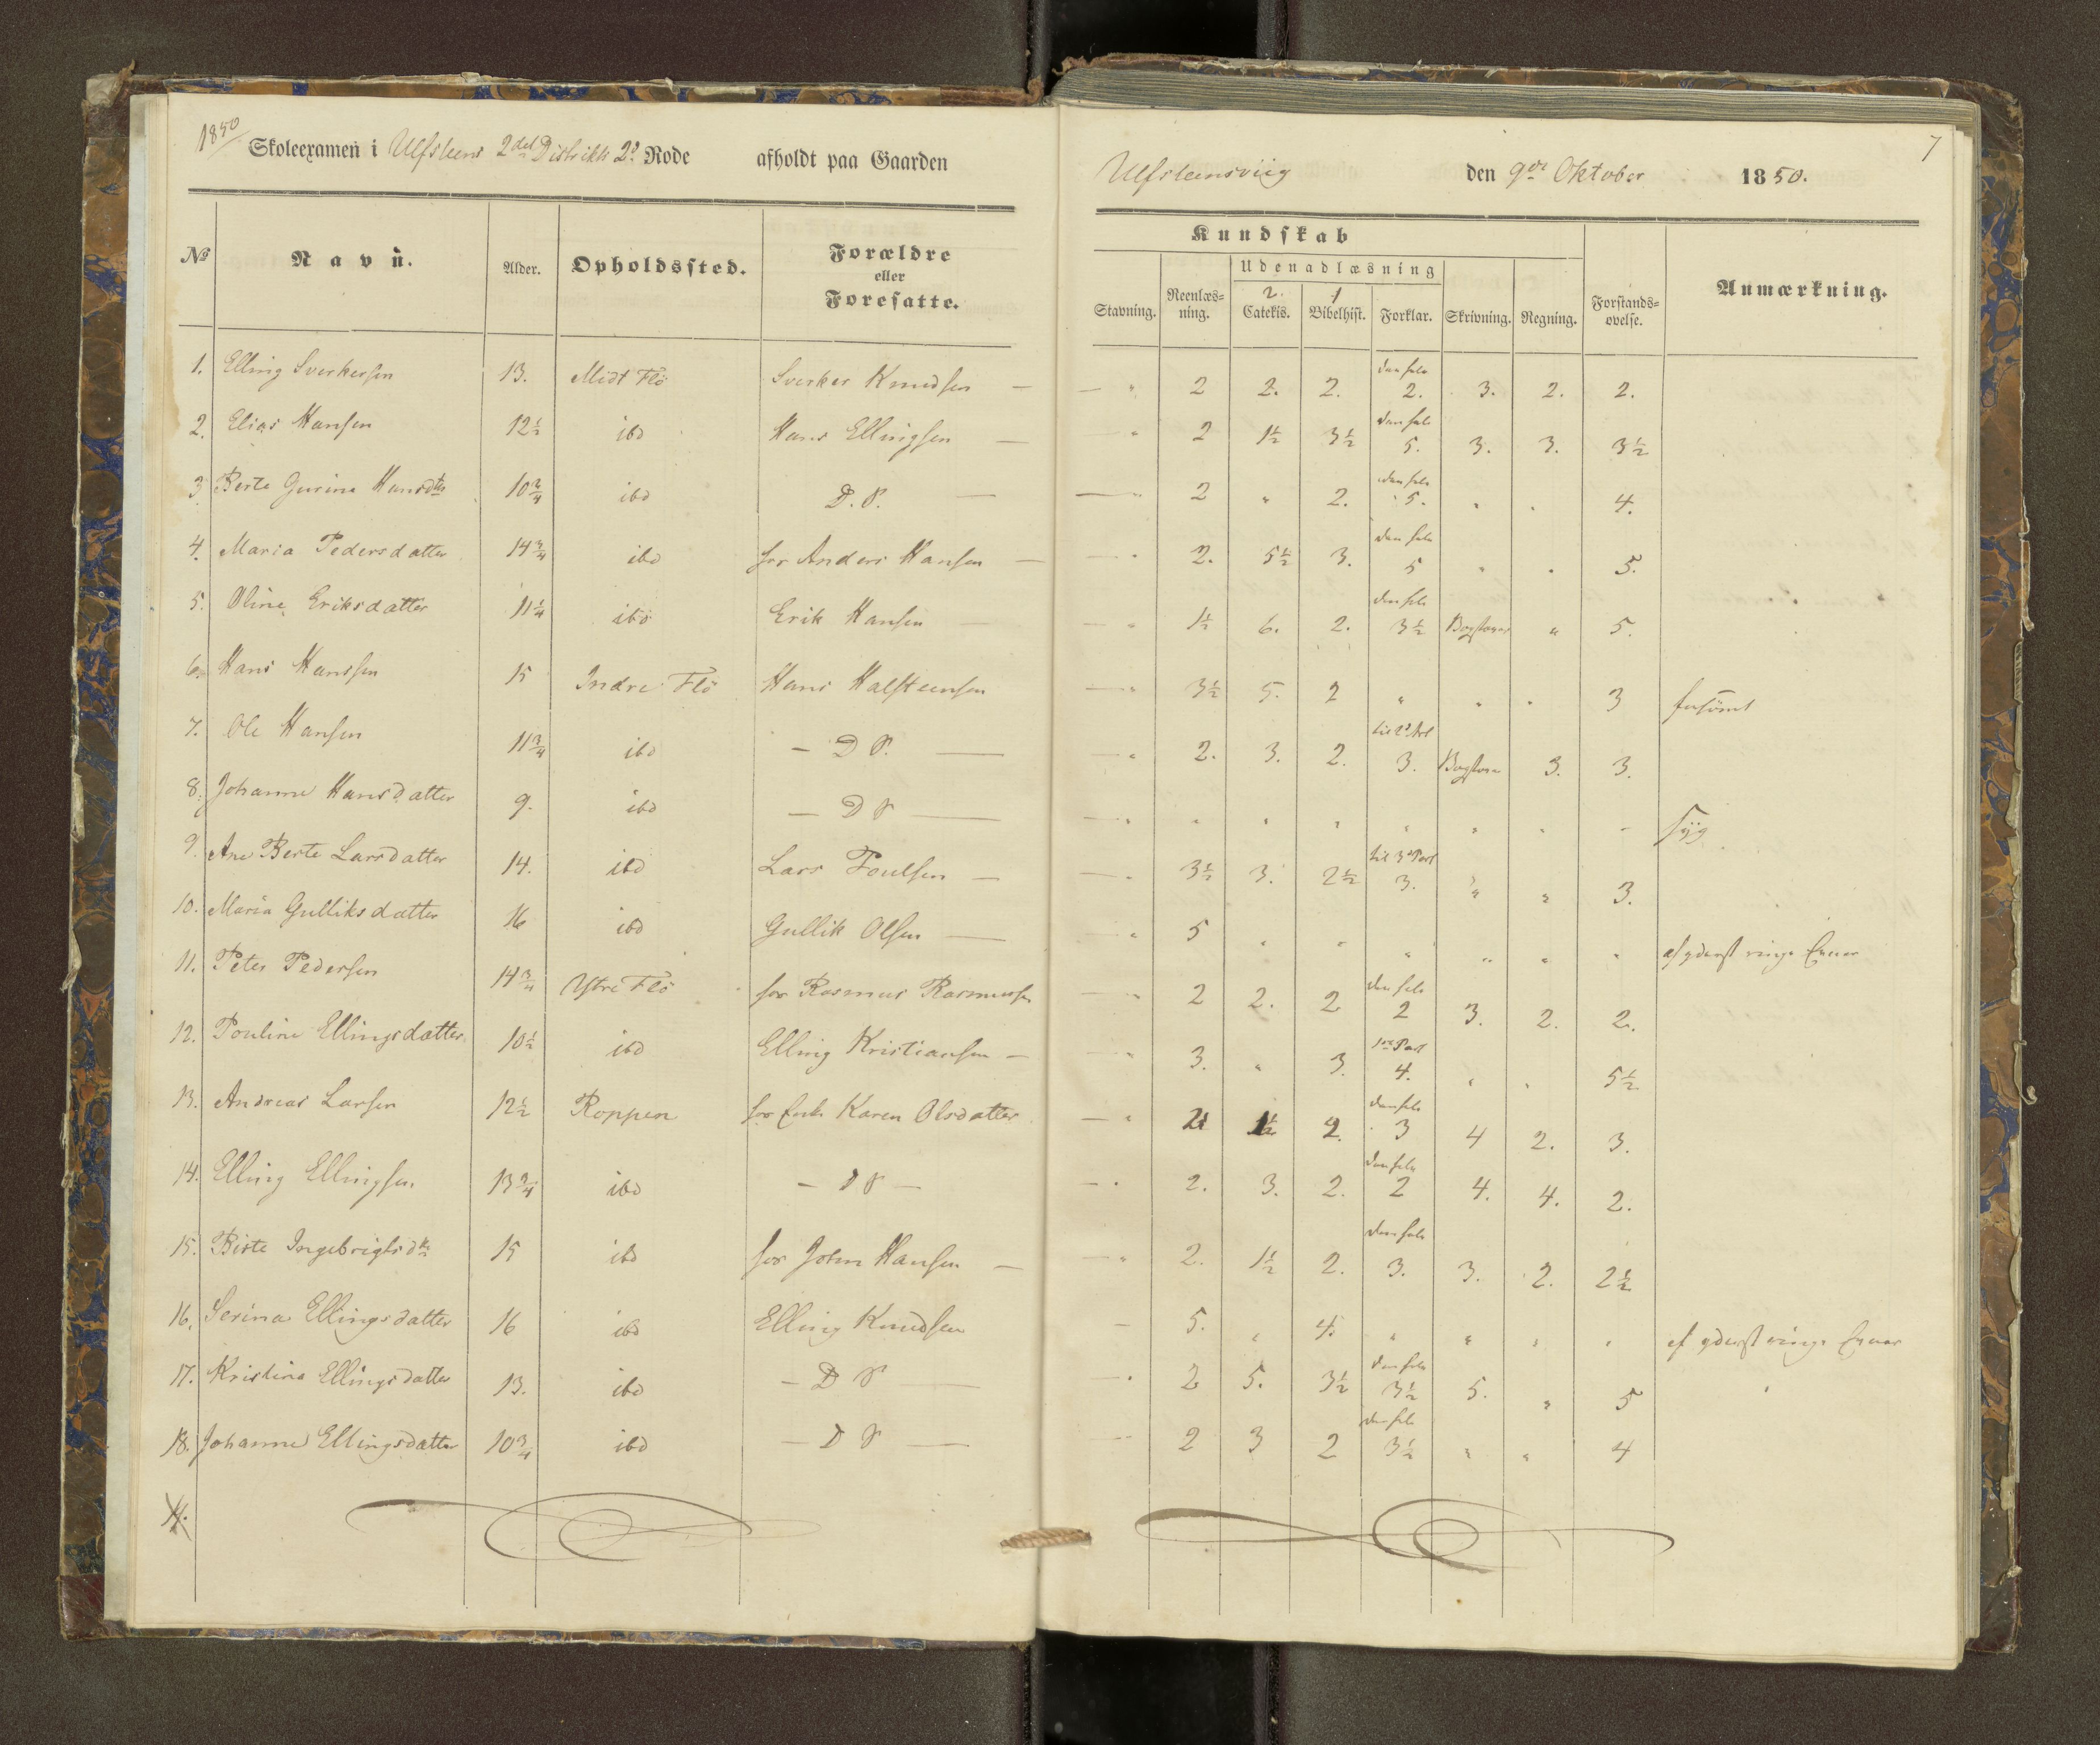 1850
Skoleexamen i Ulfsteens 2det Distrikts 2d Rode afholdt paa Gaarden Ulfsteensviig den 9de Oktober 1850.
7
No Navn. Alder. Opholdssted. Forældre eller Foresatte. Kundskab Anmærkning.
Stavning. Reenlæsning. Udenadlæsning Skrivning. Regning. Forstandsøvelse.
2. Catekis. 1 Bibelhist. Forklar.
1. Elling Sverkersen 13. Midt Flö Sverker Knudsen — — " 2 2. 2. den hele 2. 3. 2. 2.
2. Elias Hansen 12½ ibd Hans Ellingsen — — " 2 1½ 3½ den hele 5. 3. 3. 3½
3 Berte Gurine Hansdtr 10¾ ibd D. S. — — " 2 " 2. den hele 5. " " 4.
4. Maria Pedersdatter 14¾ ibd for Anders Hansen — — " 2. 5½ 3. den hele 5 " " 5.
5. Oline Eriksdatter 11¼ ibd Erik Hansen — — " 1½ 6. 2. den hele 3½ Bogstaver " 5.
6. Hans Hanssen 15 Indre Flö Hans Halsteensen — " 3½ 5. 2 " " " 3 forsömt
7. Ole Hansen 11¾ ibd — D S. — — " 2. 3. 2. til 2d Art 3. Bogstav 3. 3.
8. Johanne Hansdatter 9. ibd — D S — — " " " " " " " " syg
9. Ane Berte Larsdatter 14. ibd Lars Poulsen — — " 3½ 3. 2½ til 3d Part 3. " " 3.
10. Maria Gulliksdatter 16 ibd Gullik Olsen — — " 5 " " " " " " af yderst ringe Evner
11. Peter Pedersen 14¾ Ytre Flö for Rasmus Rasmussen — " 2 2. 2 den hele 2 3. 2. 2.
12. Pouline Ellingsdatter 10½ ibd Elling Kristiansen — — " 3. " 3. 1ste Part 4. " " 5½
13. Andreas Larsen 12½ Roppen for Enke Karen Olsdatter — " 2 1½ 2. den hele 3 4 2. 3.
14. Elling Ellingsen 13¾ ibd — D S — — " 2. 3. 2. den hele 2 4. 4. 2.
15. Birte Ingebrigtsdtr 15 ibd for John Hansen — — " 2. 1½ 2. den hele 3. 3. 2. 2½
16. Serina Ellingsdatter 16 ibd Elling Knudsen — 5. " 4. " " " " af yderst ringe Evner
17. Kristina Ellingsdatter 13. ibd — D S — — " 2 5. 3½ den hele 3½ 5. " 5
18. Johanne Ellingsdatter 10¾ ibd — D S — — 2 3 2 den hele 3½ " " 4